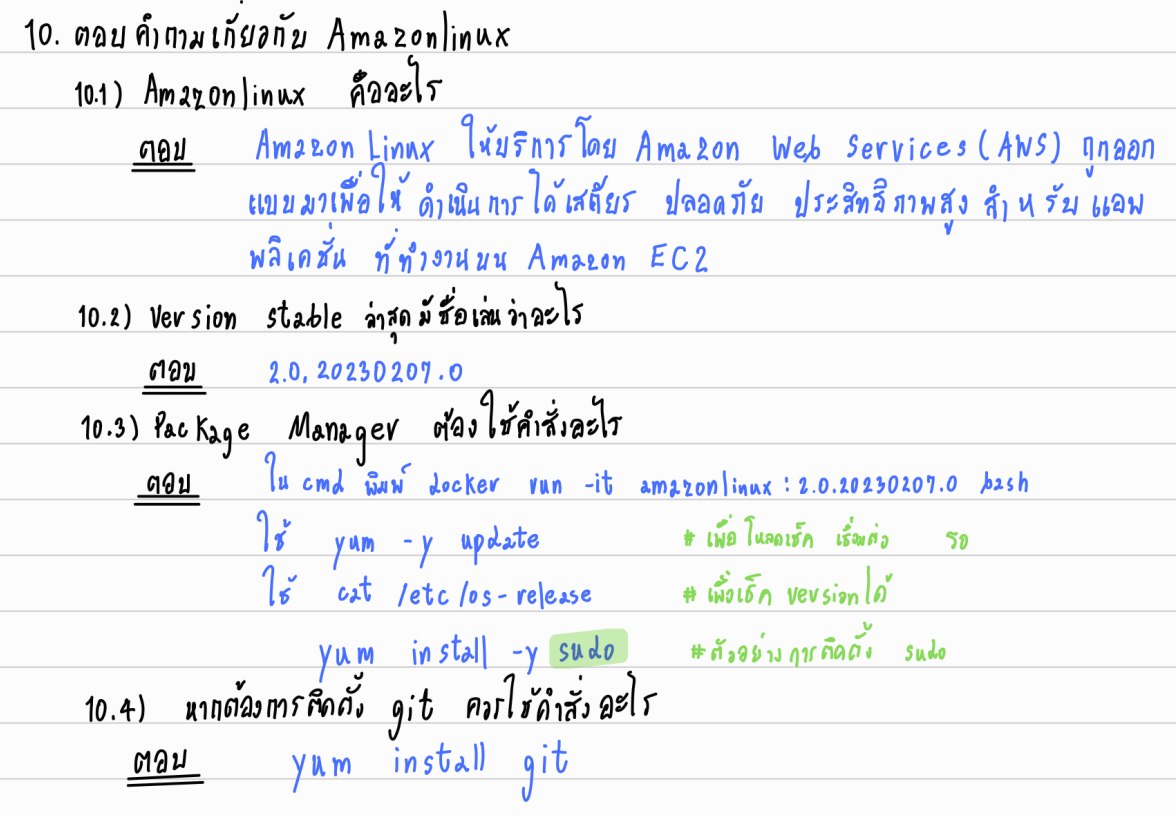 10. ตอบคำถามเกี่ยวกับ Amazonlinux
10.1) Amazonlinux คืออะไร
ตอบ Amazon Linux ให้บริการโดย Amazon Web Services (AWS) ถูกออก
แบบมาเพื่อให้ ดำเนินการได้เสถียร ปลอดภัย ประสิทธิภาพสูง สำหรับแอพ
พลิเคชั่น ที่ทำงานบน Amazon EC2
10.2) Version stable ล่าสุดมีชื่อเล่นว่าอะไร
ตอบ 2.0.20230207.0
10.3) Package Manager ต้องใช้คำสั่งอะไร
ตอบ ใน cmd พิมพ์ docker run -it amazonlinux:2.0.20230207.0 bash
ใช้ yum -y update # เพื่อโหลดเช็ค เชื่อมต่อ รอ
ใช้ cat /etc/os-release # เพื่อเช็ค version ได้
yum install -y sudo # ตัวอย่างการติดตั้ง sudo
10.4) หากต้องการติดตั้ง git ควรใช้คำสั่งอะไร
ตอบ yum install git